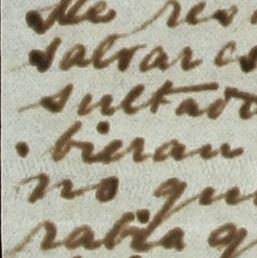 Me res
salvar es
sultado
. bieran
no qu
rabia q